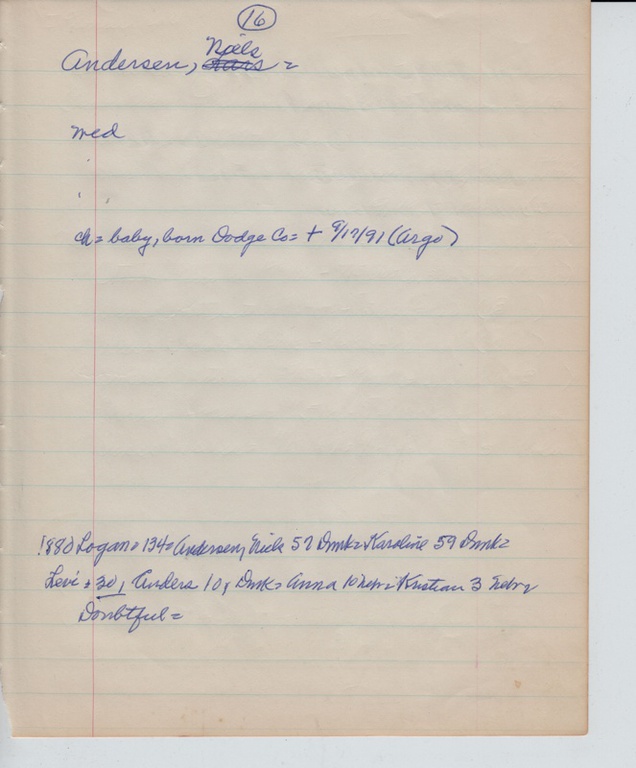 16
Niels
Andersen, =
med
ch = baby, born Dodge Co = + 9/17/91 (Argo)
1880 Logan = 134 = Andersen, Niels 57 Dmk = Karoline 59 Dmk =
Levi + 30, Anders 10, Dmk = Anna 10 Nebr = Kristian 3 Nebr =
Doubtful =